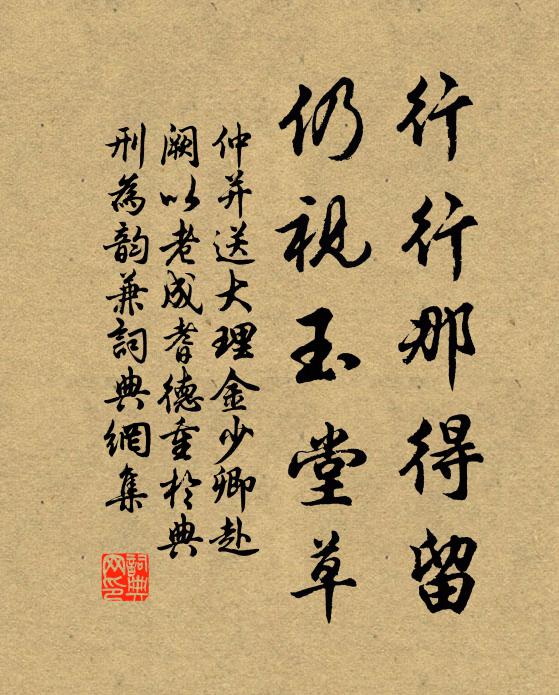 行行那得留
仍視玉堂草
仲并送大理金少卿赴
闕以老成耆德重於典
刑為韵兼詞典網集
詞典网印